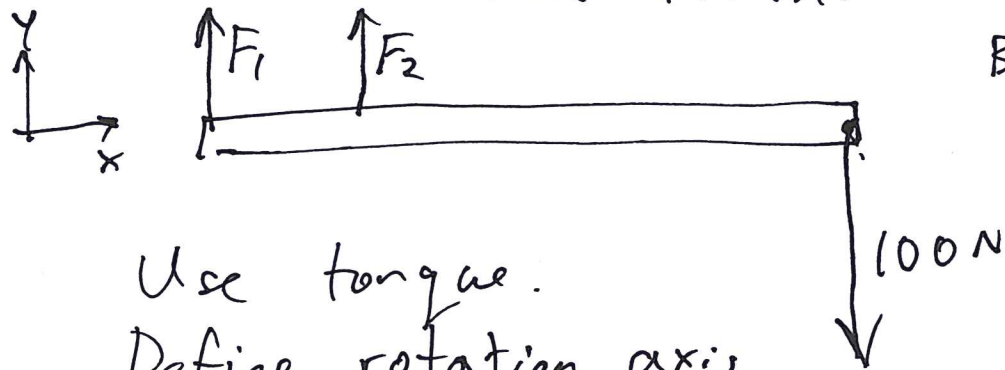 Y
F₁
F₂
B
X
100 N
Use torque.
Define rotation axis